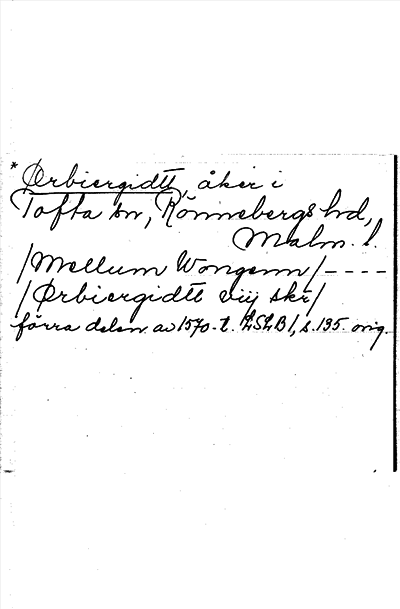 * Ørbiergidtt, åker i
Tofta sn, Rönnebergs hd,
Malm. l.
/Mellum Wongenn/ - - - -
/Ørbiergidtt viij skr/
förra delen av 1570-t. LSLB1, s. 195. orig.